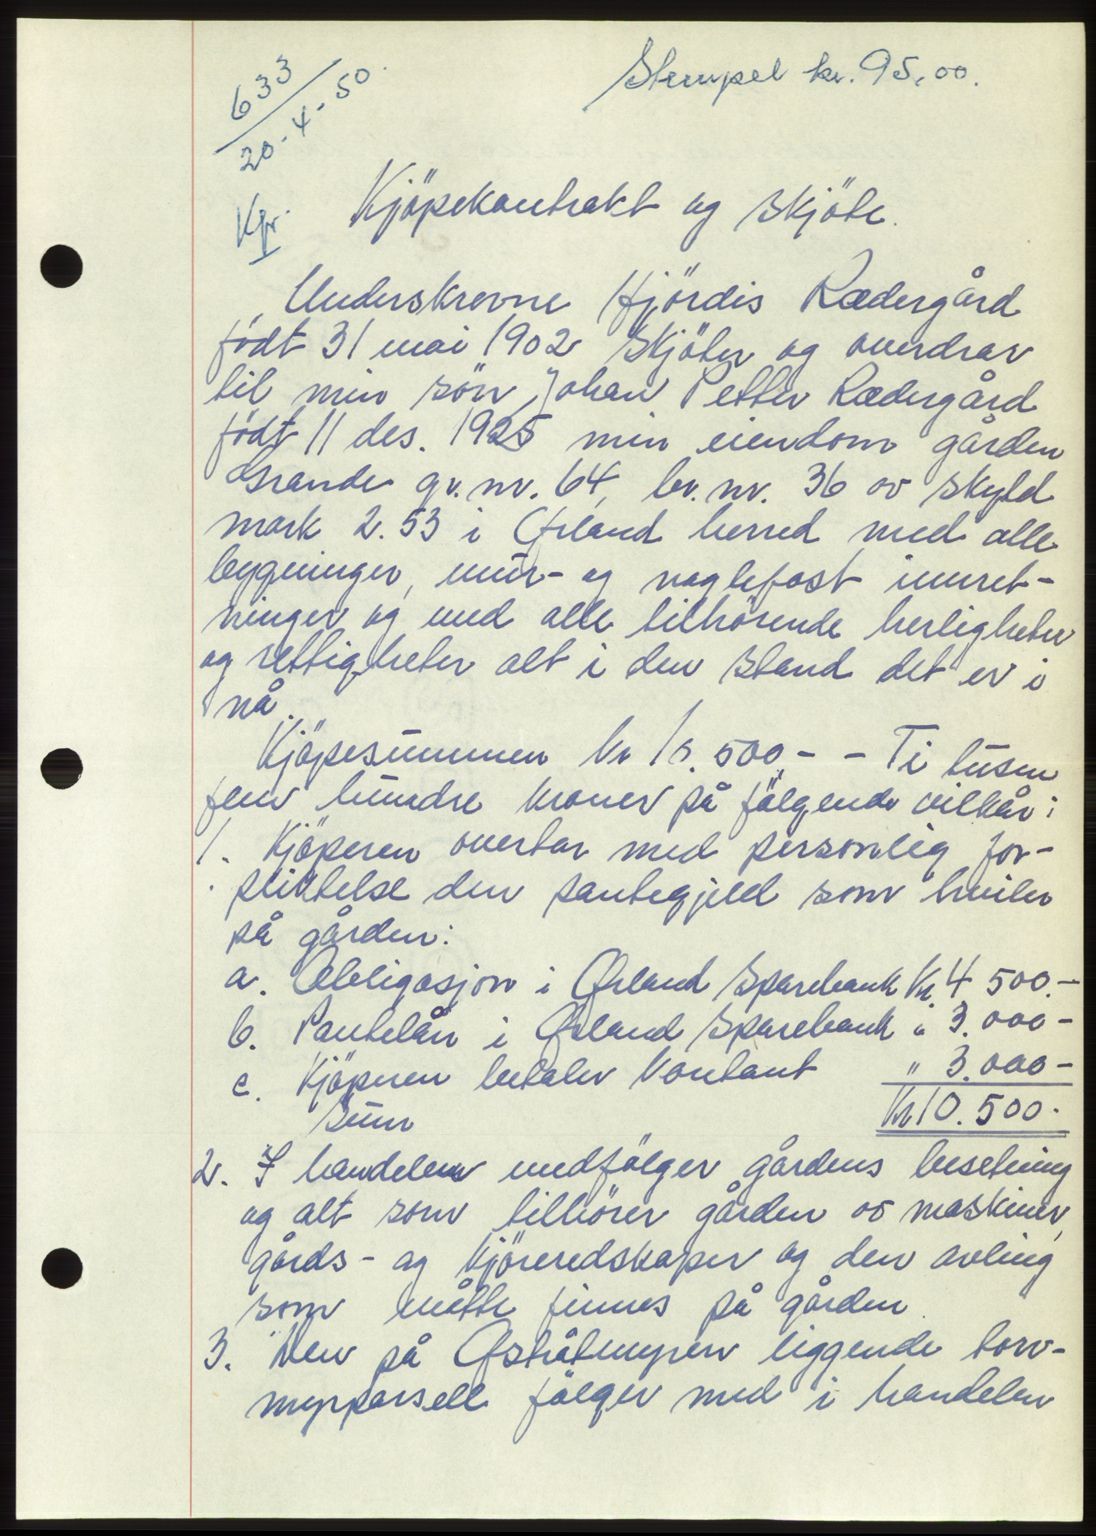 633
20-4-50.
Stempel kr. 95,00.
Kpr.
Kjöpekontrakt og skjöte.
Underskrevne Hjördis Rædergård
født 31 mai 1902 skjöter og overdrar
til min sön Johan Petter Rædergård
født 11 des. 1925 min eiendom gården
Grande gr.nr. 64, br.nr. 36 av skyld
mark 2.53 i Ørland herred med alle
bygninger, mur- og naglefast innret-
ninger og med alle tilhörende herligheter
og rettigheter alt i den stand det er i
nå.
Kjöpesummen kr 10.500,- - Ti tusen
fem hundre kroner på fölgende vilkår:
1. Kjöperen overtar med personlig for-
pliktelse den pantegjeld som hviler
på gården:
a. Obligasjon i Ørland Sparebank Kr. 4 500.-
b. Pantelån i Ørland Sparebank " 3.000-
c. Kjöperen betaler kontant " 3.000-
Sum Kr 10.500.
2. I handelen medfölger gårdens besetning
og alt som tilhörer gården av maskiner,
gårds- og kjöreredskaper og den avling
som måtte finnes på gården.
3. Den på Østråtmyren liggende torv-
myrparsell fölger med i handelen